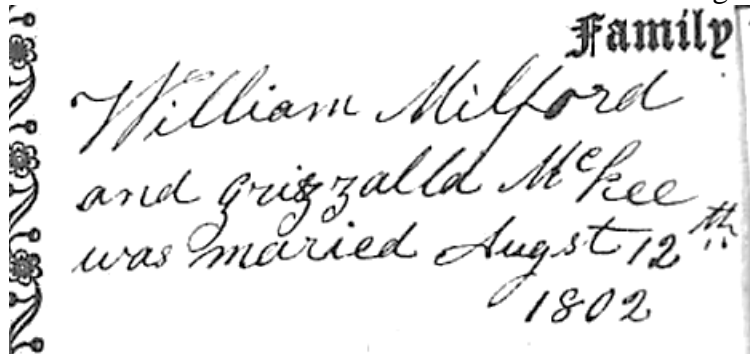 Family
William Milford
and grizzalla McKee
was maried Augst 12th
1802